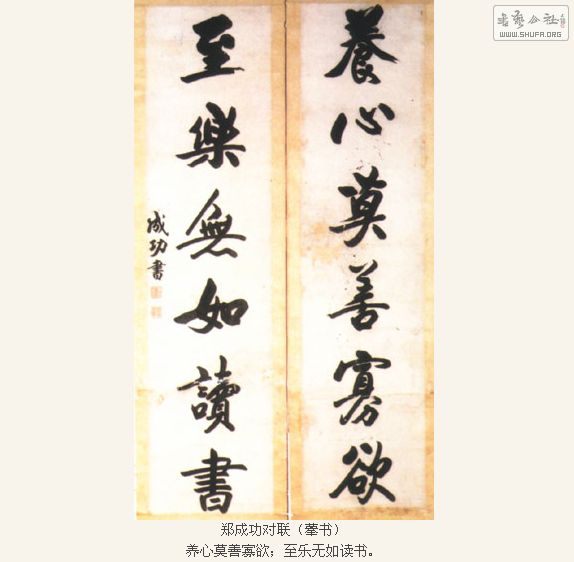 養心莫善寡欲
至樂無如讀書
成功書
WWW.SHUFA.ORG
郑成功对联（书）
养心莫善寡欲；至乐无如读书。